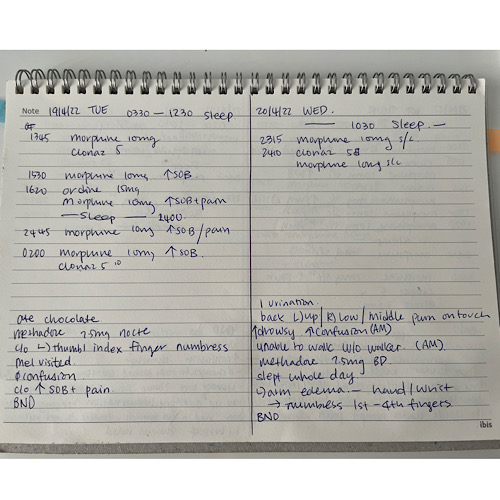 Note 19/4/22 TUE 0330 — 1230 Sleep
1345 morphine 10mg
clonaz 5
1530 morphine 10mg ↑SOB
1620 ordine 15mg
Morphine 10mg ↑SOB + pain
— Sleep — 2400
2445 morphine 10mg ↑SOB/pain
0200 morphine 10mg ↑SOB.
clonaz 5
ate chocolate
methadone 7.5mg nocte
c/o L) thumb/index finger numbness
Mel visited
confusion
c/o ↑SOB + pain
BND
20/4/22 WED.
— 1030 Sleep. —
2315 morphine 10mg s/c.
2410 clonaz 5
morphine 10mg s/c
1 urination
back L)up/R)Low/middle pain on touch
↑drowsy ↑confusion (AM)
unable to walk w/o walker. (AM).
methadone 7.5mg BD
slept whole day
L) arm edema — hand/wrist
→ numbness 1st-4th fingers
BND
ibis